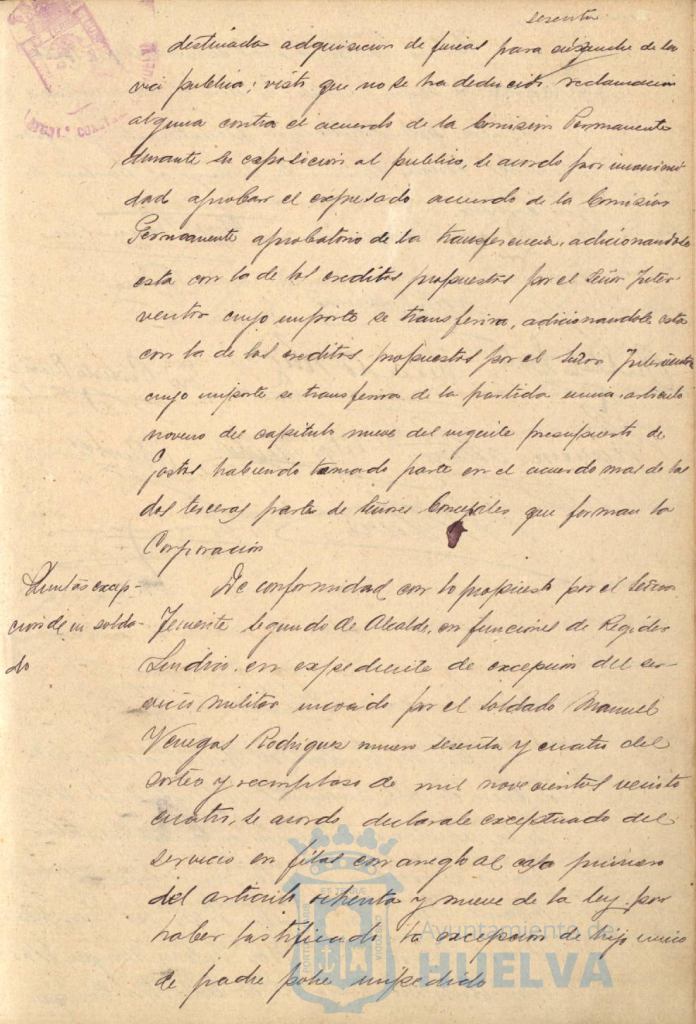 sesenta
destinada adquisicion de fincas para de la
via publica; visto que no se ha deducido reclamacion
alguna contra el acuerdo de la Comision Permanente
durante su exposicion al publico, se acordo por unanimi
dad aprobar el expresado acuerdo de la Comision
Permanente aprobatorio de la transferencia, adicionandole
esta con la de los creditos propuestos por el Señor Inter
ventor cuyo importe se transferira, adicionandole esta
con la de los creditos propuestos por el Señor Interventor
cuyo importe se transferira de la partida unica, articulo
noveno del capitulo nueve del vigente presupuesto de
Gastos habiendo tomado parte en el acuerdo mas de las
dos terceras partes de Señores Concejales que forman la
Corporacion
Quintas excep-
cion de un solda-
do
De conformidad con lo propuesto por el Señor
Teniente segundo de Alcalde, en funciones de Regidor
Sindico en expediente de excepcion del ser
vicio militar incoado por el soldado Manuel
Venegas Rodriguez numero sesenta y cuatro del
sorteo y reemplazo de mil novecientos veinte
cuatro, se acordo declararle exceptuado del
servicio en filas con arreglo al caso primero
del articulo ochenta y nueve de la ley por
haber justificado la excepcion de hijo unico
de padre pobre impedido
Ayuntamiento de
HUELVA